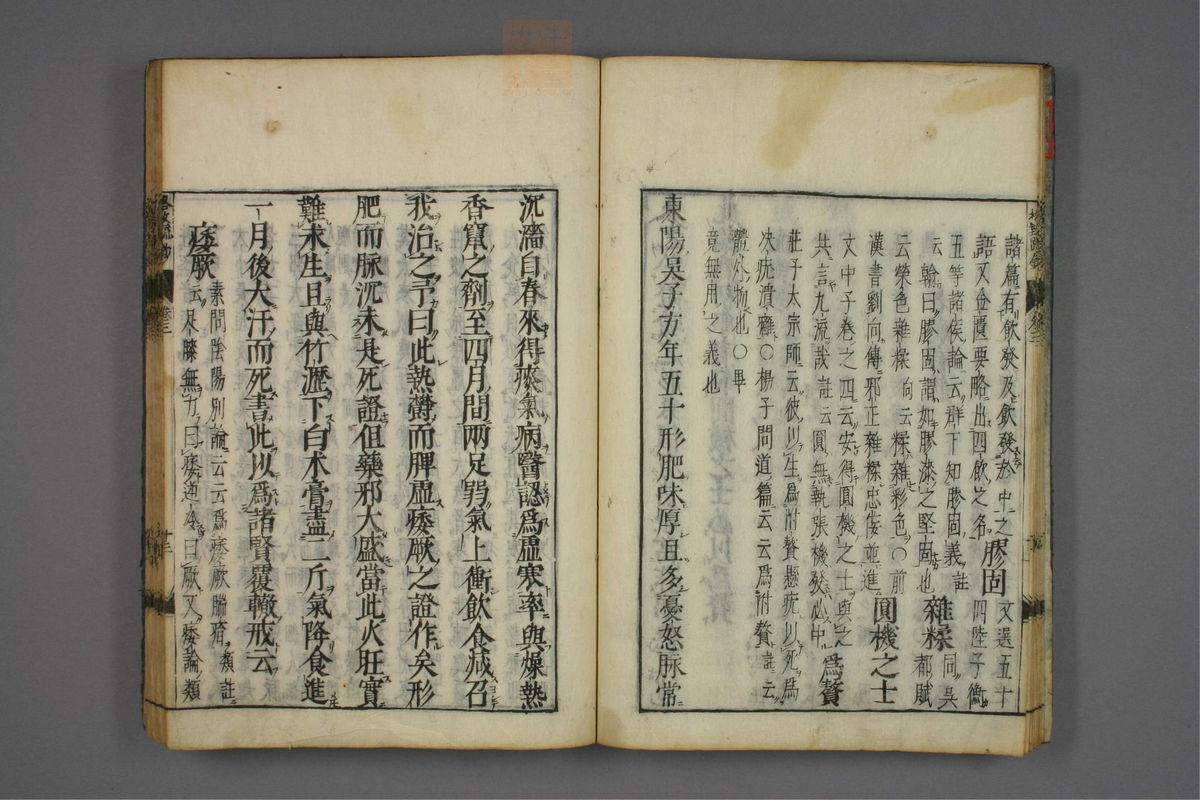 諸篇有飲發及飲發於中之膠固文選五十
語又金匱要略出四飲之名四陸子衡
五等諸侯論云群下知膠固義註
云翰曰膠固謂如膠漆之堅固也雜糅同吳都賦
云榮色雜糅向云糅雜彩色〇前
漢書劉向傳邪正雜糅忠佞並進圓機之士
文中子卷之四云安得圓機之士與之
共言九流哉註云圓無執張機發必中為贅
莊子太宗師云彼以生為附贅懸疣以死為
決疣潰癰〇楊子問道篇云云為附贅註云
贅外物也〇畢
竟無用之義也
東陽吳子方年五十形肥味厚且多憂怒脈常
沉濇自春來得痰氣病醫認爲虛寒率與燥熱
香竄之劑至四月間兩足弱氣上衝飲食減召
我治之予曰此熱鬱而脾虛痿厥之證作矣形
肥而脈沉未是死證但藥邪大盛當此火旺實
難求生且與竹瀝下白朮膏盡二斤氣降食進
一月後大汗而死書此以爲諸賢覆轍戒云
痿厥素問陰陽別論云云爲痿厥腨㾓類註
云足膝無力曰痿逆冷曰厥又痿論類